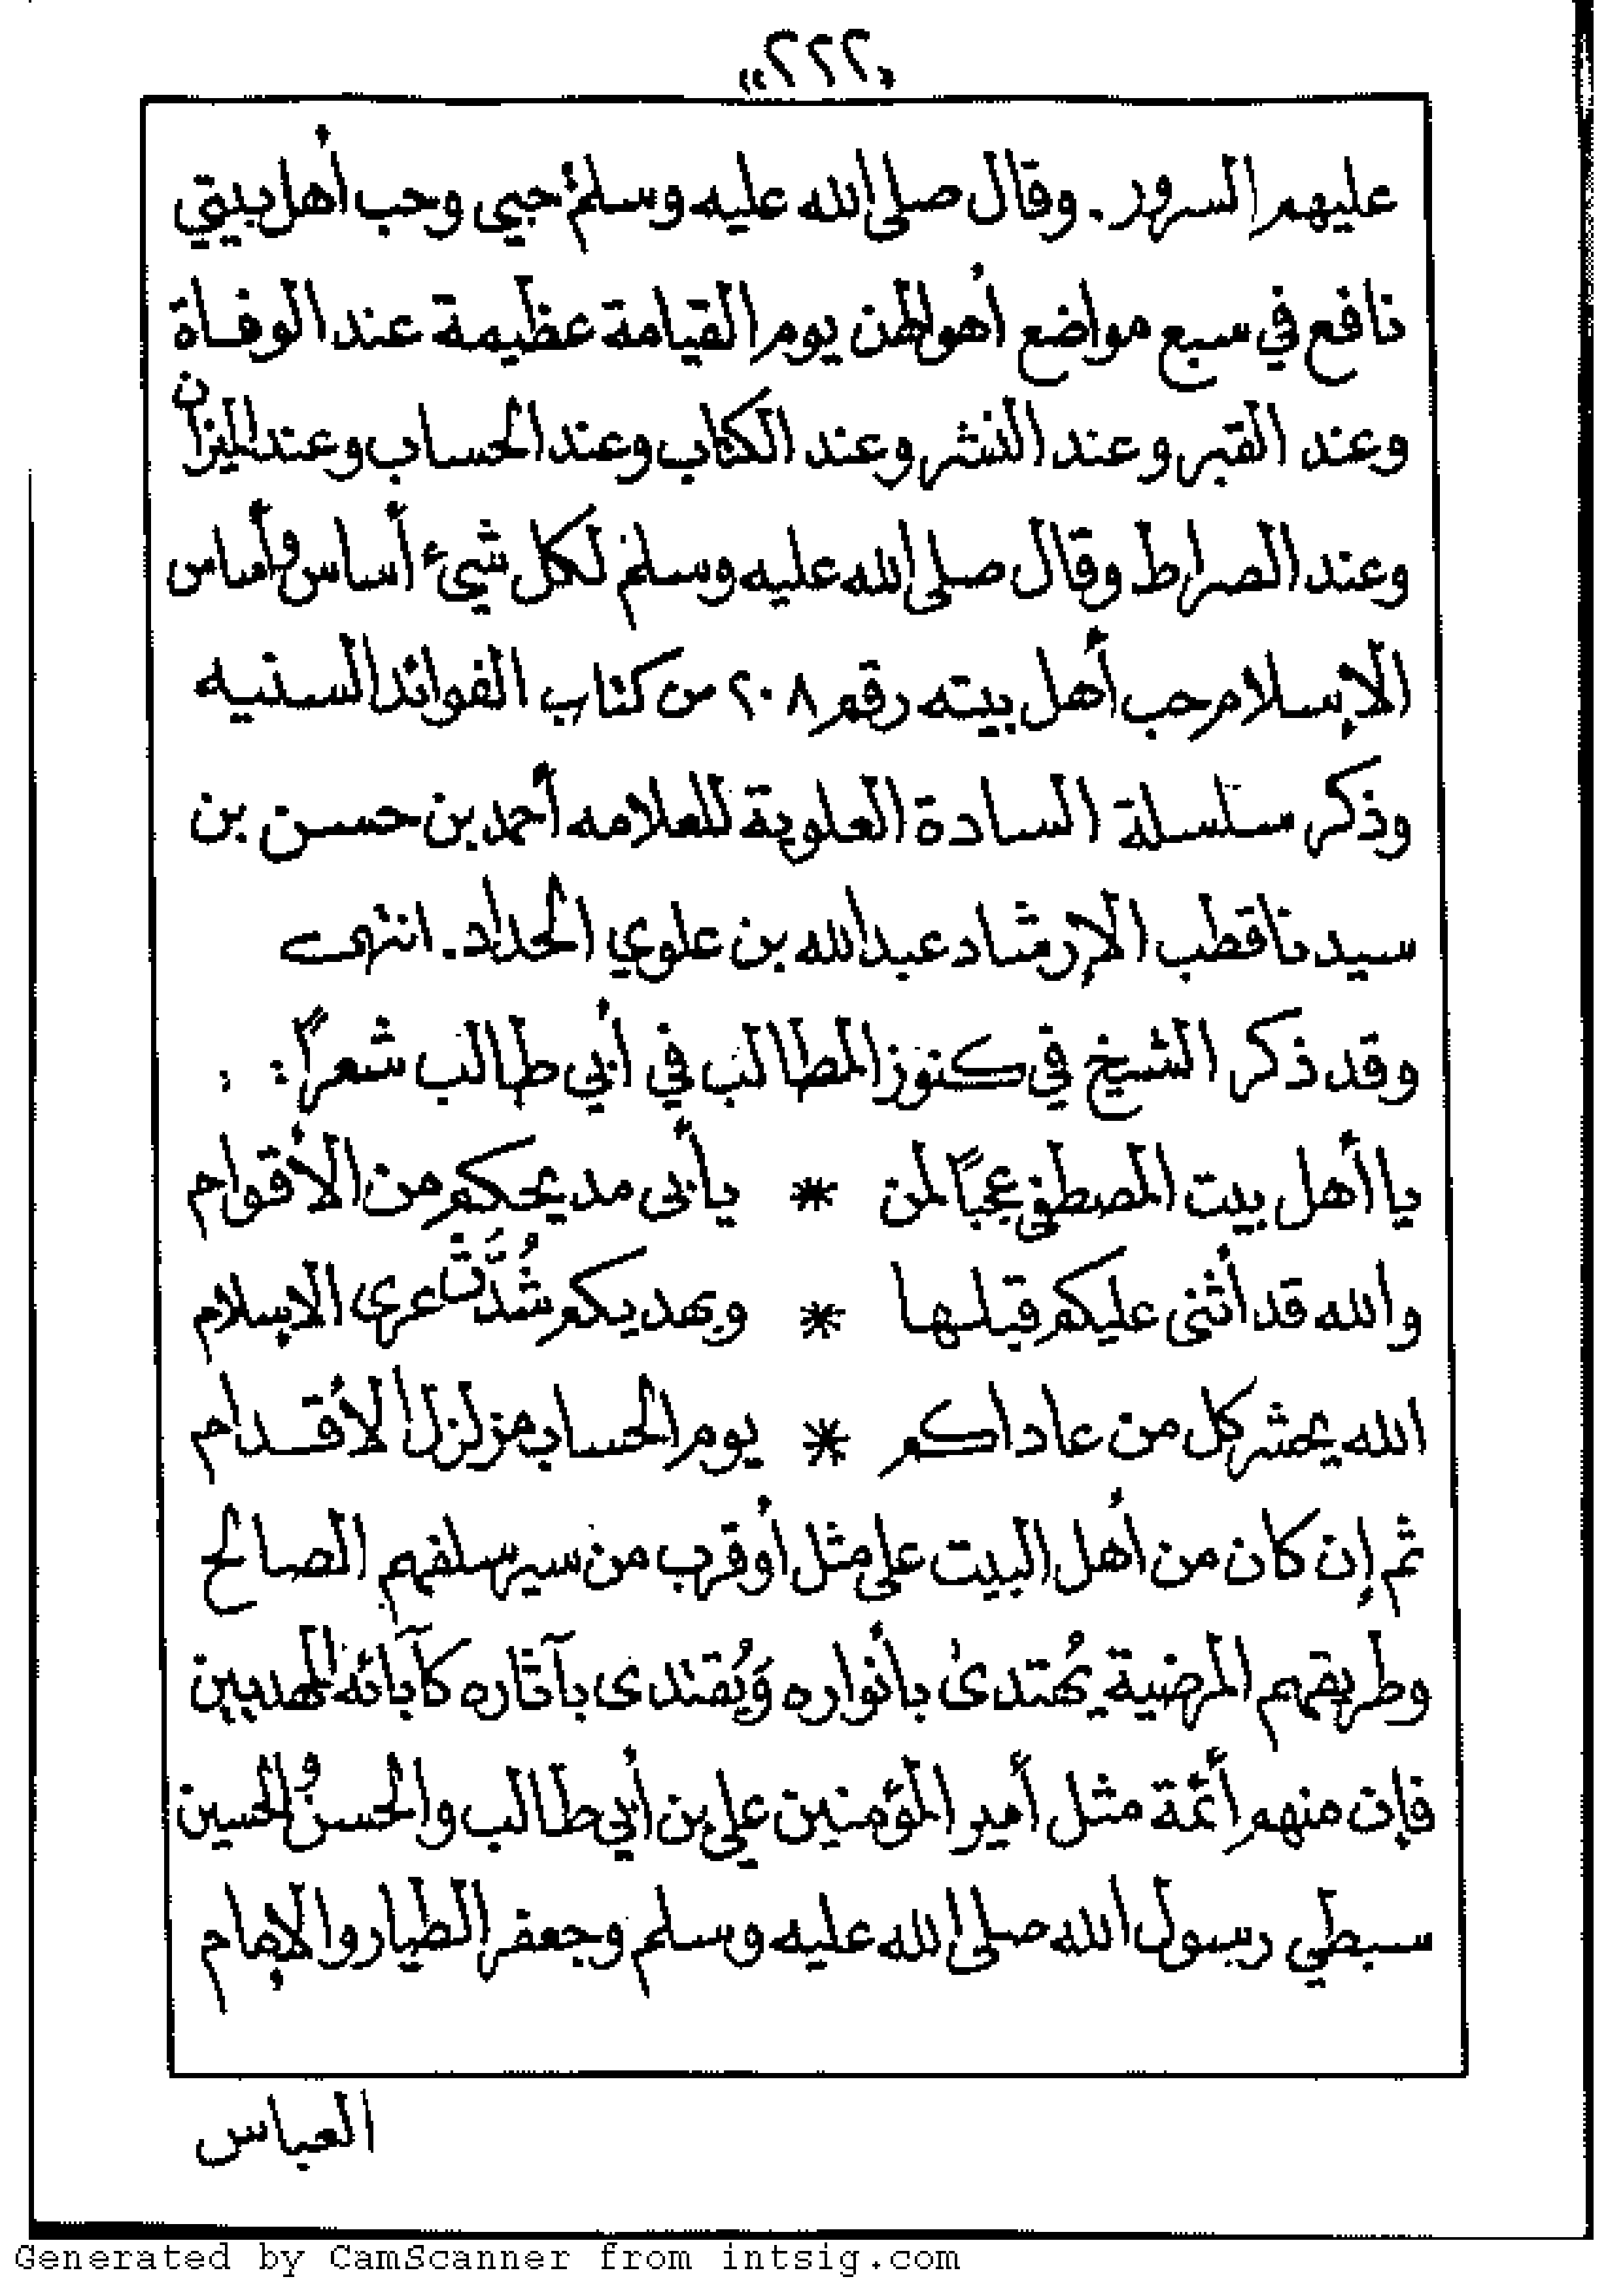 «٢٢٢»
عليهم السرور. وقال صلى الله عليه وسلم حبي وحب أهل بيتي
نافع في سبع مواضع أهوالهن يوم القيامة عظيمة عند الوفاة
وعند القبر وعند النشر وعند الكتاب وعند الحساب وعند الميزان
وعند الصراط وقال صلى الله عليه وسلم لكل شيئ أساس وأساس
الإسلام حب أهل بيته رقم ٢٠٨ من كتاب الفوائد السنيه
وذكر سلسلة السادة العلوية للعلامه أحمد بن حسن بن
سيدنا قطب الإرشاد عبدالله بن علوي الحداد. انتهى
وقد ذكر الشيخ في كنوز المطالب في أبي طالب شعراً: :
يا أهل بيت المصطفى عجباً لمن * يأبى مديحكم من الأقوام
والله قد أثنى عليكم قبلها * وبهديكم شُدَّت عرى الاسلام
الله يحشر كل من عاداكم * يوم الحساب مزلزل الأقدام
ثم إن كان من أهل البيت على مثل أو قرب من سير سلفهم الصالح
وطريقهم المرضية يُهتدىٰ بأنواره وَيُقتدى بآثاره كآبائه المهديين
فإن منهم أئمة مثل أمير المؤمنين علي بن أبي طالب والحسن والحسين
سبطي رسول الله صلى الله عليه وسلم وجعفر الطيار والإمام
العباس
Generated by CamScanner from intsig.com